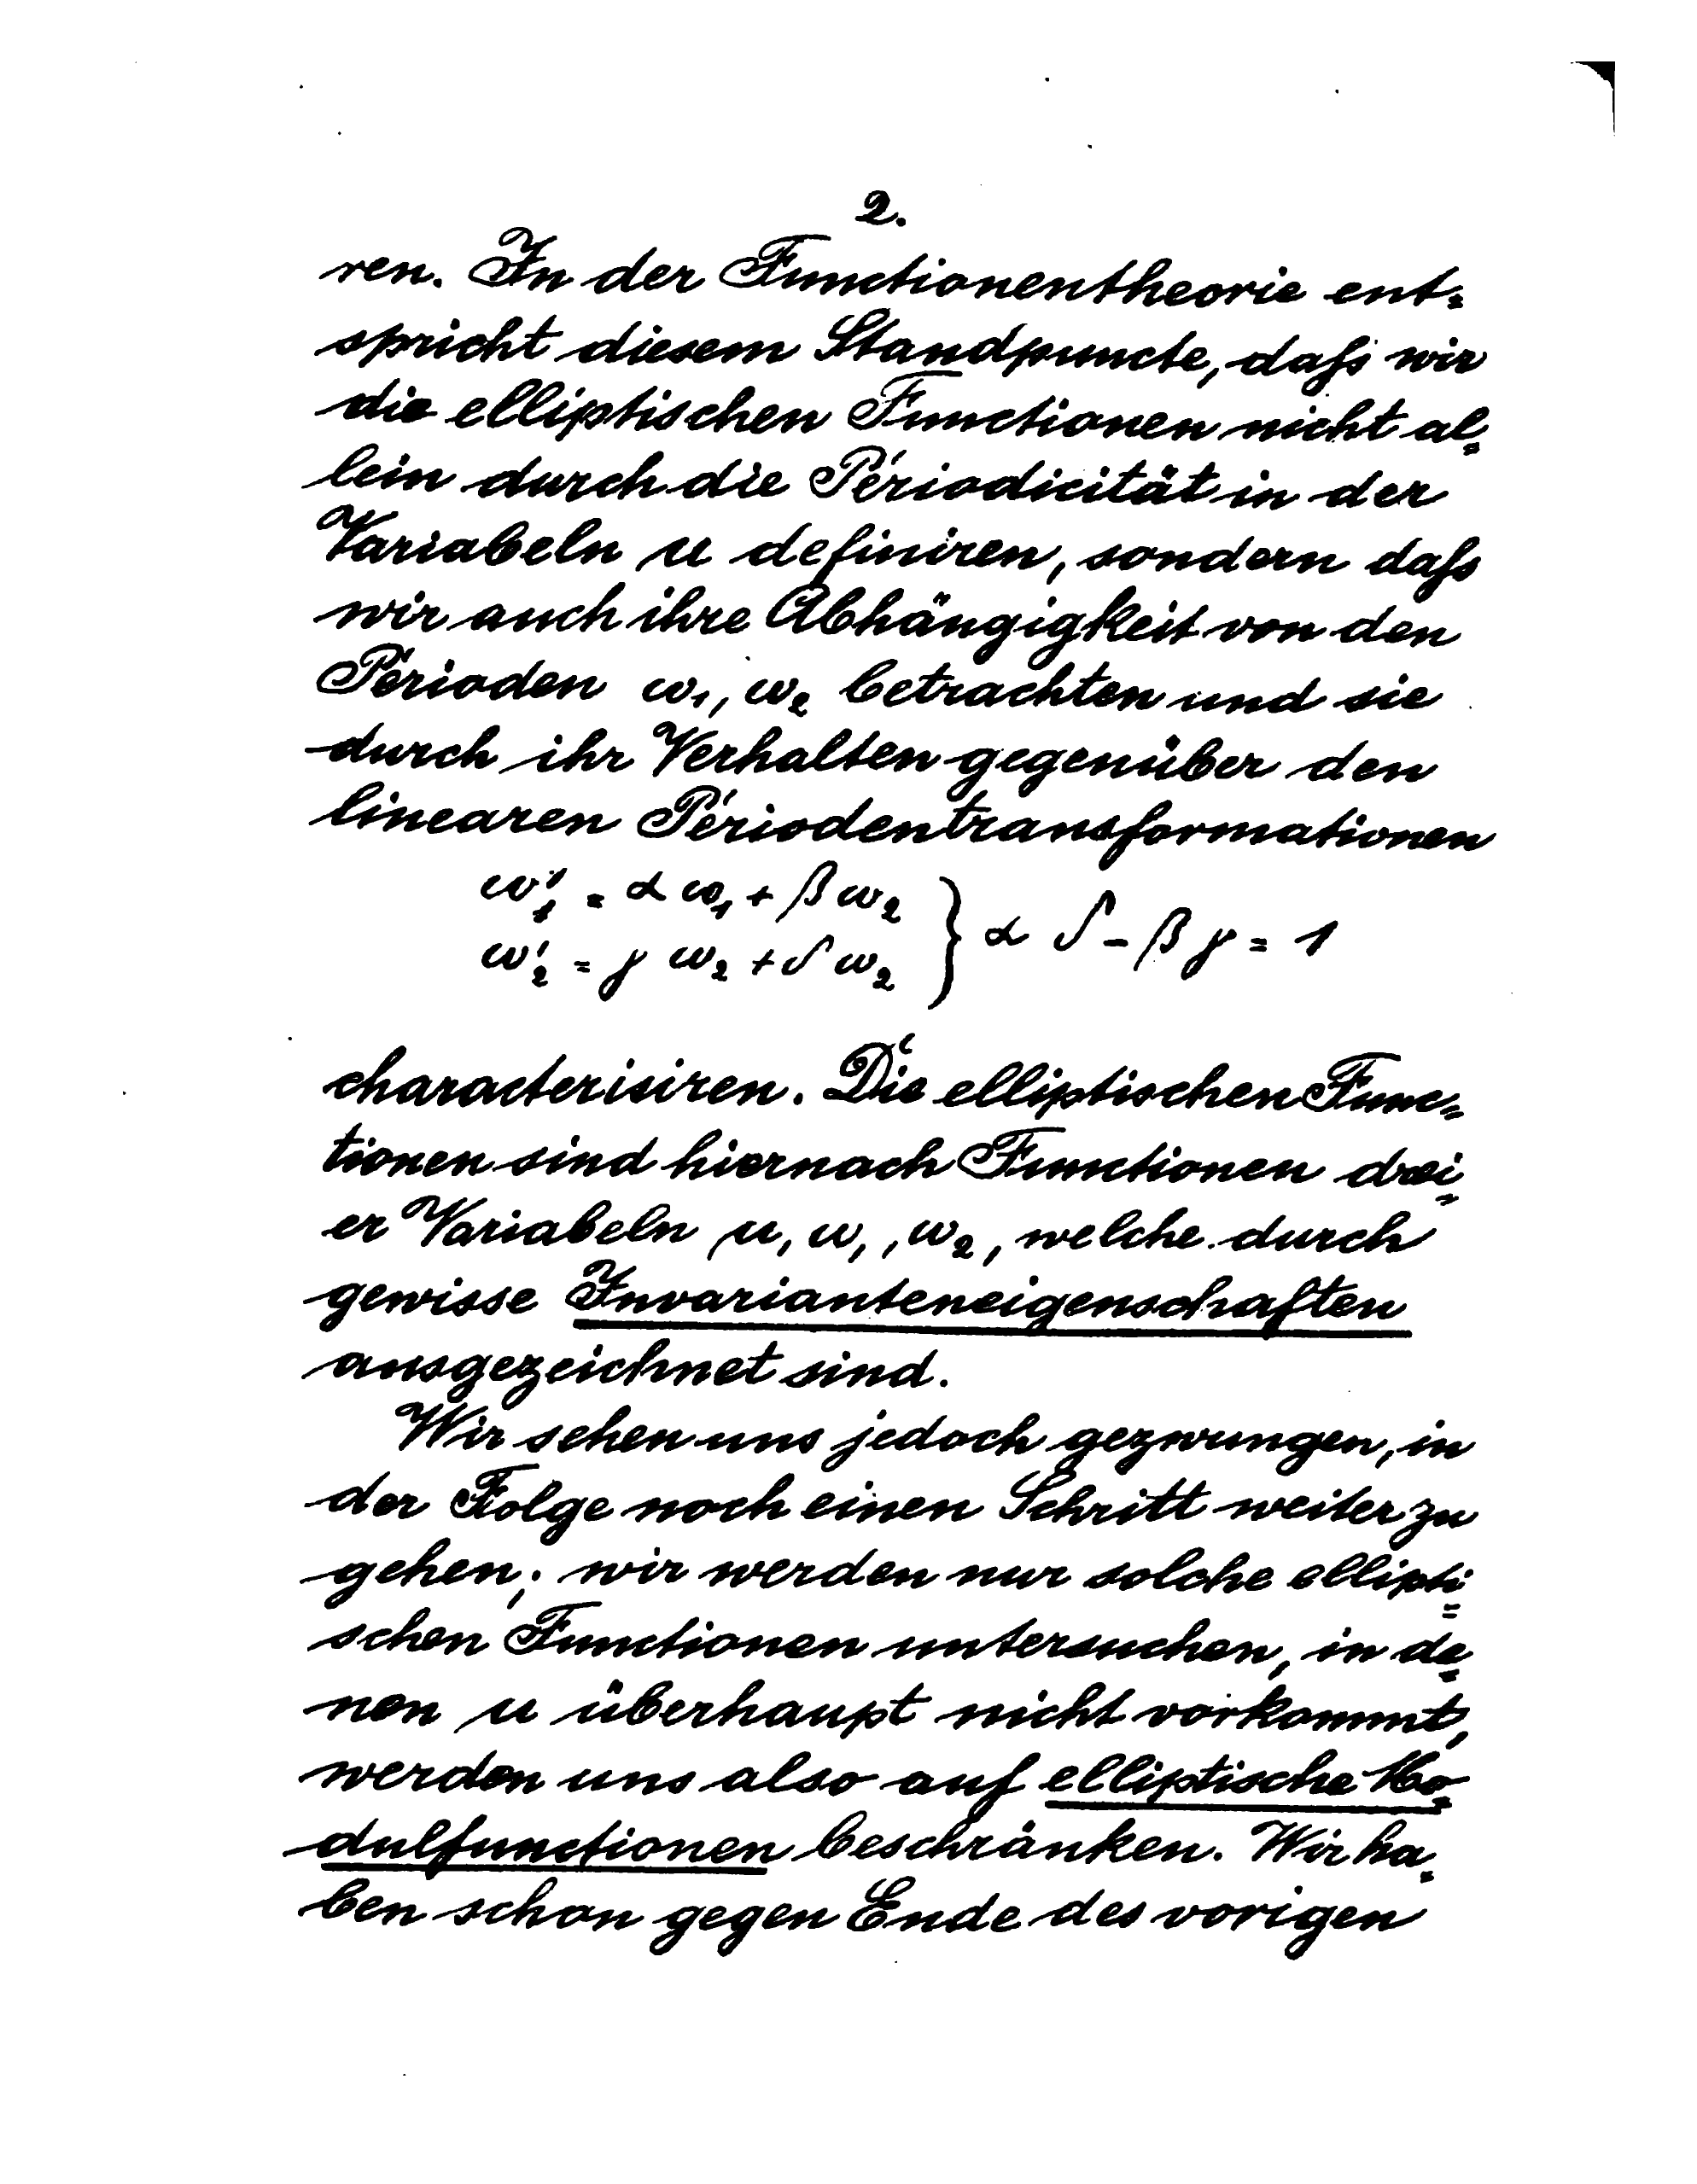 2.
ren. In der Functionentheorie ent=
spricht diesem Standpuncte, daſs wir
die elliptischen Functionen nicht al=
lein durch die Periodicität in der
Variabeln u definiren, sondern daſs
wir auch ihre Abhängigkeit von den
Perioden ω₁, ω₂ betrachten und sie
durch ihr Verhalten gegenüber den
linearen Periodentransformationen
ω₁' = α ω₁ + β ω₂ } α δ - β γ = 1
ω₂' = γ ω₂ + δ ω₂
characterisiren. Die elliptischen Func=
tionen sind hiernach Functionen drei=
er Variabeln u, ω₁, ω₂, welche durch
gewisse Invarianteneigenschaften
ausgezeichnet sind.
Wir sehen uns jedoch gezwungen, in
der Folge noch einen Schritt weiter zu
gehen; wir werden nur solche ellipti=
schen Functionen untersuchen, in de=
nen u überhaupt nicht vorkommt,
werden uns also auf elliptische Mo=
dulfunctionen beschränken. Wir ha=
ben schon gegen Ende des vorigen